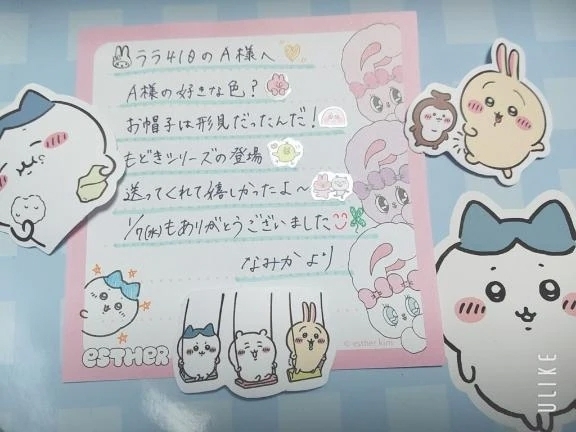 ララ418のA様へ
A様の好きな色?
お帽子は形見だったんだ!
もどきシリーズの登場
送ってくれて嬉しかったよ～
1/7(水)もありがとうございました
なみかより
ESTHER
© esther kim
ULIKE